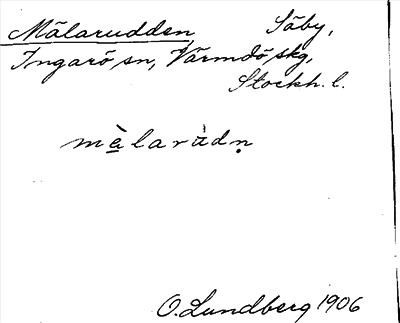 Mälarudden Säby,
Ingarö sn, Värmdö skg,
Stockh. l.
mὲ̱larùdṇ
O. Lundberg 1906